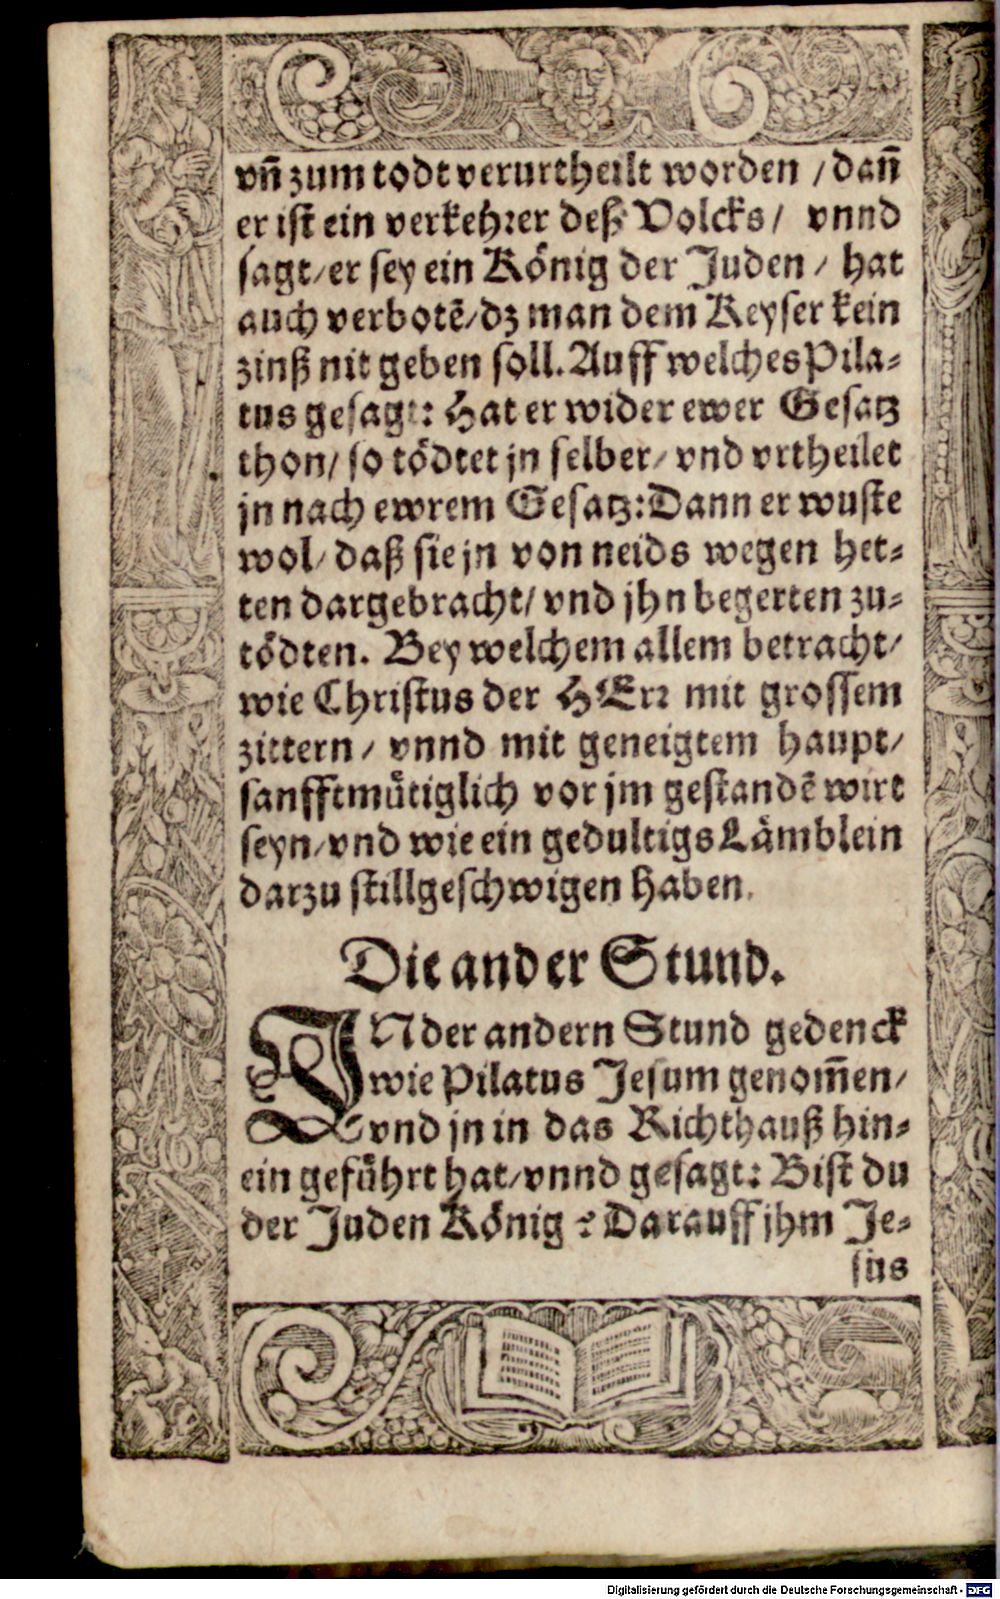 vn̄ zum todt verurtheilt worden / dan̄
er ist ein verkehrer deß Volcks / vnnd
sagt / er sey ein König der Juden / hat
auch verbotẽ / dz man dem Keyser kein
zinß nit geben soll. Auff welches Pila-
tus gesagt: Hat er wider ewer Gesatz
thon / so tödtet jn selber / vnd vrtheilet
jn nach ewrem Gesatz: Dann er wuste
wol / daß sie jn von neids wegen het-
ten dargebracht / vnd jhn begerten zu-
tödten. Bey welchem allem betracht /
wie Christus der HErr mit grossem
zittern / vnnd mit geneigtem haupt /
sanfftmütiglich vor jm gestandẽ wirt
seyn / vnd wie ein gedultigs Lämblein
darzu stillgeschwigen haben.
Die ander Stund.
IN der andern Stund gedenck
wie Pilatus Jesum genom̄en /
vnd jn in das Richthauß hin-
ein geführt hat / vnnd gesagt: Bist du
der Juden König? Darauff jhm Je-
sus
Digitalisierung gefördert durch die Deutsche Forschungsgemeinschaft - DFG